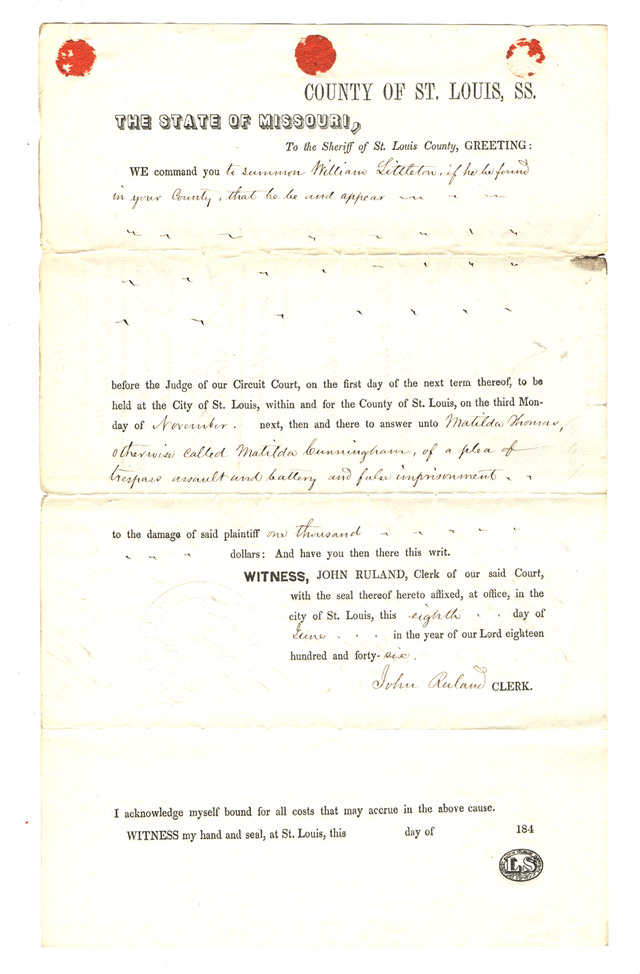 COUNTY OF ST. LOUIS, SS.
THE STATE OF MISSOURI,
To the Sheriff of St. Louis County, GREETING:
WE command you to summon William Littleton, if he be found
in your County, that he be and appear
before the Judge of our Circuit Court, on the first day of the next term thereof, to be
held at the City of St. Louis, within and for the County of St. Louis, on the third Mon-
day of November. next, then and there to answer unto Matilda Thomas,
otherwise called Matilda Cunningham, of a plea of
trespass assault and battery and false imprisonment
to the damage of said plaintiff one thousand
dollars: And have you then there this writ.
WITNESS, JOHN RULAND, Clerk of our said Court,
with the seal thereof hereto affixed, at office, in the
city of St. Louis, this eighth day of
June in the year of our Lord eighteen
hundred and forty-six.
John Ruland CLERK.
I acknowledge myself bound for all costs that may accrue in the above cause.
WITNESS my hand and seal, at St. Louis, this day of 184
LS